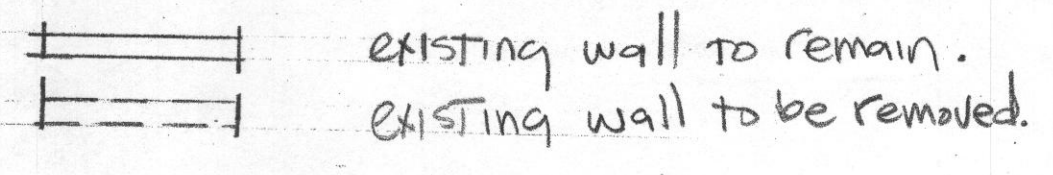 existing wall to remain.
existing wall to be removed.